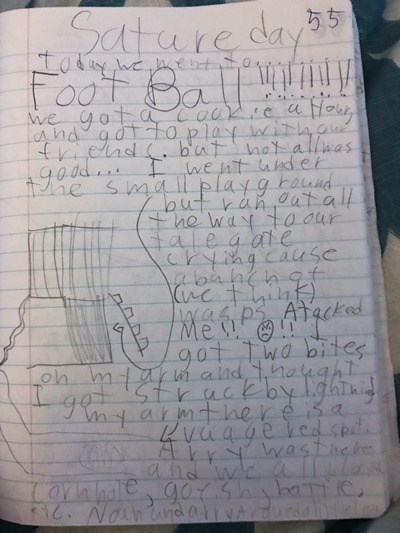 55
Satureday
today we went to.....
Foot Ball !!!!!!!!!
we got a cookie a Hour,
and got to play with our
friends. but not all was
good... I went under
the small playground
but ran out all
the way to our
talegate
crying cause
a bunch of
(we think)
wasps Atacked
Me!! !!
got two bites
on my arm and thought
I got struck by lightning
my arm there is a
huage red spot.
Arry was here
and we all
cornhole, battle,
etc. Noah and arry